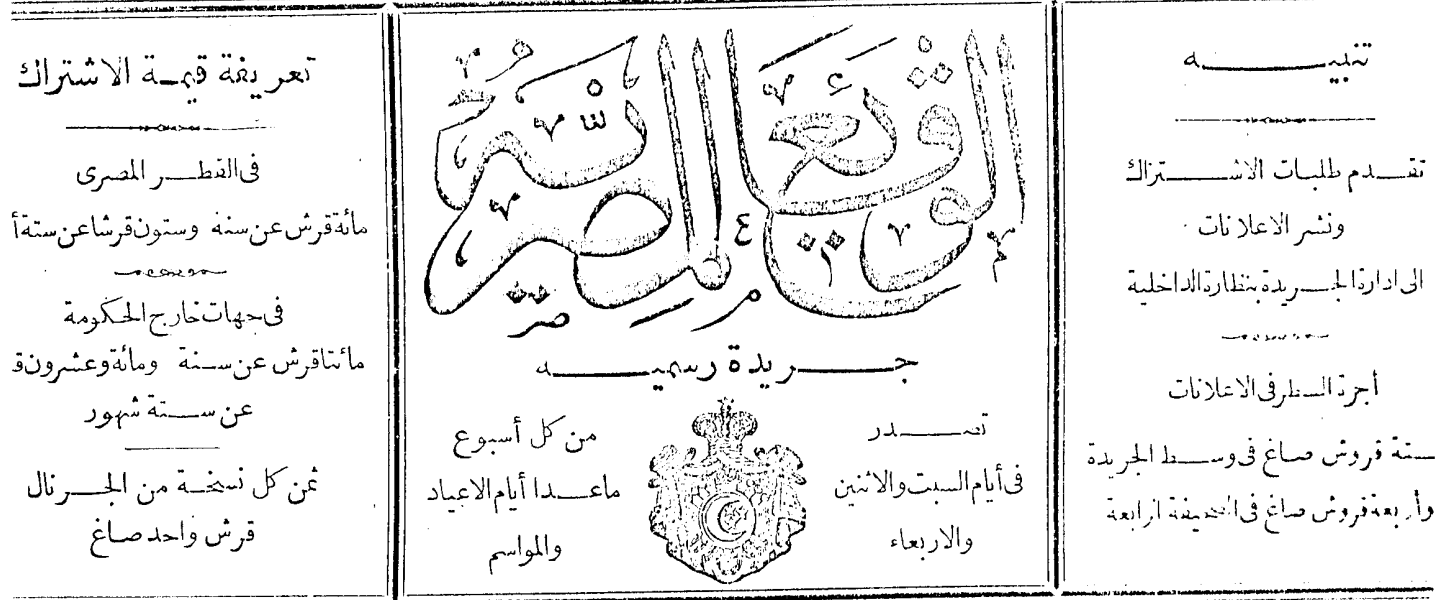 تنبيـــــــه
تقــدم طلبـات الاشــــتراك
ونشر الاعلانات
الى ادارة الجـــريدة بنظارة الداخلية
أجرة السطر فى الاعلانات
ســتة قروش صاغ فى وســط الجريدة
وأربعة قروش صاغ فى الصحيفة الرابعة
الوقائع المصرية
جــــــريدة رسميــــــه
تصـــــدر
فى أيام السبت والاثنين
والاربعاء
من كل أسبوع
ماعــدا أيام الاعياد
والمواسم
تعريفة قيمــة الاشتراك
فى القطــر المصرى
مائة قرش عن سنة وستون قرشا عن ستة أ
فى جهات خارج الحكومة
مائتا قرش عن ســنة ومائة وعشرون ق
عن ســتة شهور
ثمن كل نسخــة من الجــرنال
قرش واحد صاغ